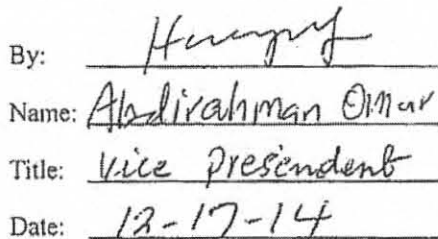 By:
Name: Abdirahman Omar
Title: Vice Presendent
Date: 12-17-14